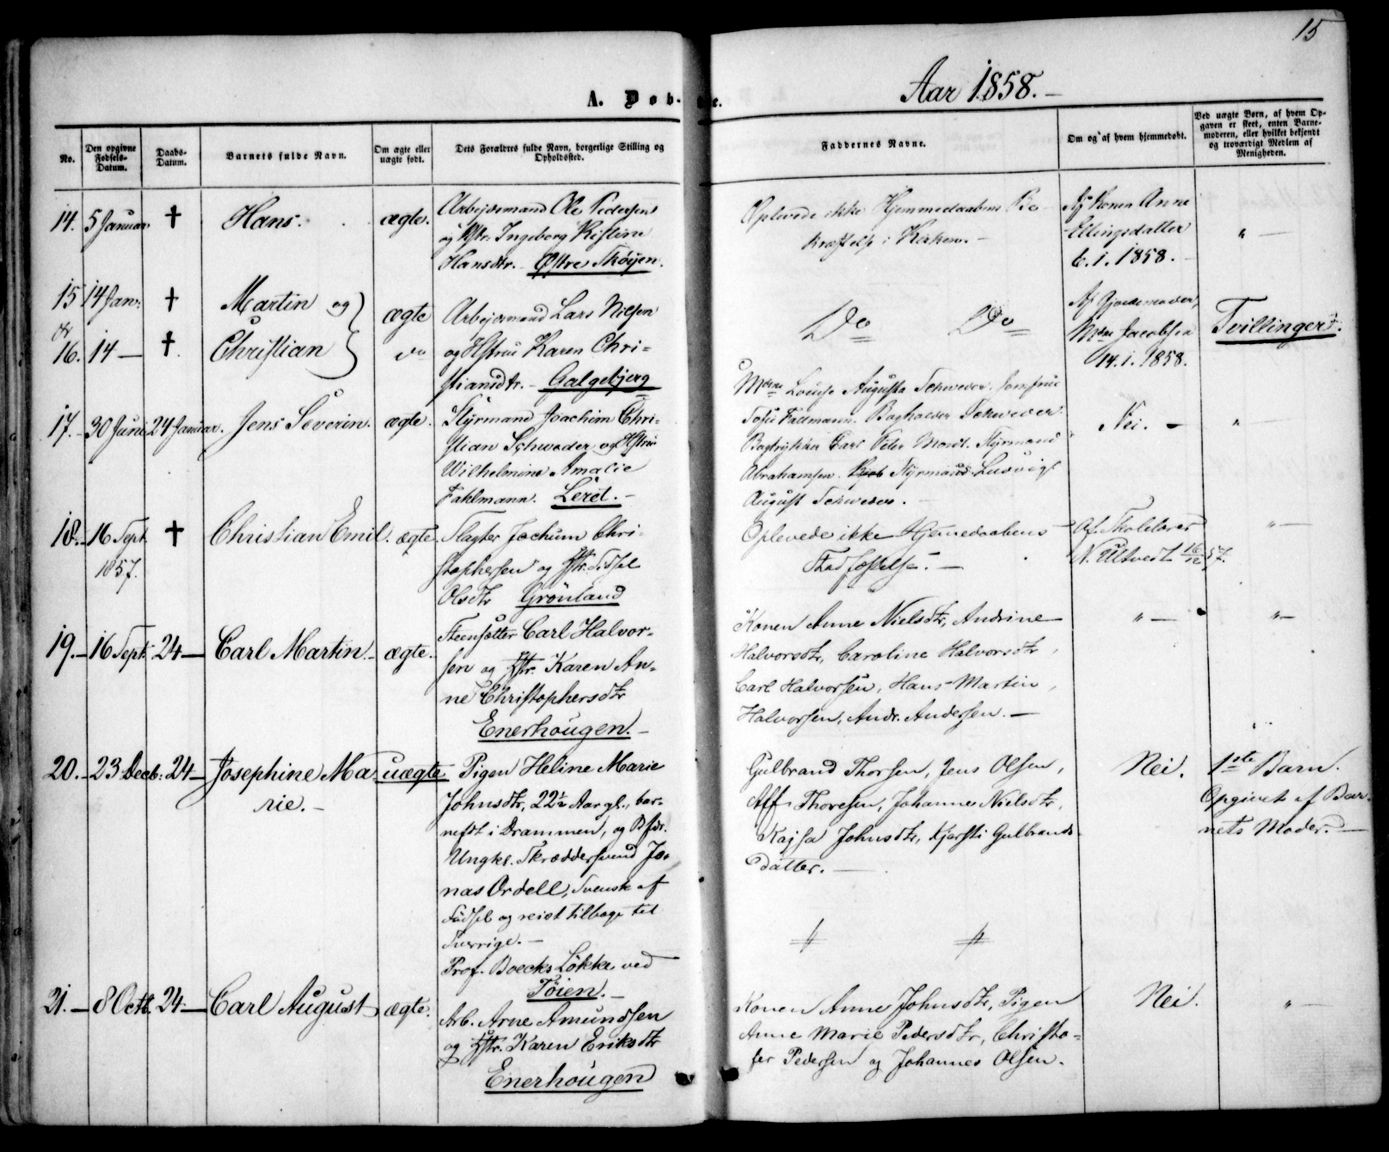 15
Aar 1858.
A. Døbte.
No.
Den opgivne Fødsels-Datum.
Daabs-Datum.
Barnets fulde Navn.
Om ægte eller uægte født.
Dets Forældres fulde Navn, borgerlige Stilling og Opholdsted.
Faddernes Navne.
Om og af hvem hjemmedøbt.
Ved uægte Børn, af hvem Opgaven er skeet, enten Barnemoderen, eller hvilket bekjendt og troværdigt Medlem af Menigheden.
14. 5 Januar † Hans. ægte.
Arbejdsmand Ole Pedersen
og Hstr. Ingeborg Kistine
Hansdtr. Østre Skøyen.
Oplevede ikke Hjemmedaabens Be-
kræftelse i Kirken.
Af Konen Anne
Ellingsdatter
6.1.1858.
"
15 14 Jan. † Martin og ægte
16. 14 — † Christian do
Arbejdsmand Lars Nilsen
og Hstru Karen Chri-
stiansdtr. Galgebjerg
Do Do
Af Gjordemoder
Mdm Jacobsen
14.1.1858.
Tvillinger.
17. 30 Juni 24 Januar. Jens Severin. ægte.
Styrmand Joachim Chri-
stian Schweder og Hstru
Wilhelmine Amalie
Fahlmann. Leret.
Mdm Louise Augusta Schweder. Jomfru
Sofie Fahlmann. Bogholder Schweder
Bogtrykker Carl Peter Styrmand
Abrahamsen. Styrmand Ludvig
August Schweder.
Nei. —
"
18. 16 Sept. 1857. † Christian Emil. ægte.
Slagter Jochum Chri-
stophersen og Hstr. Sidsel
Olsdtr Grönland
Oplevede ikke Hjemmedaabens
Stadfæstelse. —
Af Skolelærer
N. Ultvedt 16/12 57.
"
19. 16 Sept. 24 — Carl Martin. ægte.
Carl Halvor-
sen og Hstr. Karen An-
ne Christophersdtr
Enerhougen. —
Konen Anne Nielsdtr, Andrine
Halvorsdtr, Caroline Halvorsdtr,
Carl Halvorsen, Hans Martin
Halvorsen, Andr. Andersen. —
" —
" —
20. — 23 Decb. 24 — Josephine Ma-
rie. — uægte
Pigen Heline Marie
Johnsdtr, 22½ Aar gl., bar-
nefdt i Drammen, og Bfdr.
Ungk. Skræddersvend Jo-
nas Ordell, Svensk af
Fødsel og reist tilbage til
Sverrige. —
Prof. Boecks Løkke ved
Töien. —
Gulbrand Thorsen, Jens Olsen,
Aff Thoresen, Johannes Nielsdtr,
Kajsa Johnsdtr, Kjersti Gulbrands-
datter. —
Nei.
1ste Barn.
Opgivet af Bar-
nets Moder. —
21. — 8 Octb. 24 — Carl August ægte.
Arb. Arne Amundsen
og Hstr. Karen Eriksdtr
Enerhougen
Konen Anne Johnsdtr, Pigen
Anne Marie Pedersdtr, Christo-
fer Pedersen og Johannes Olsen.
Nei.
"